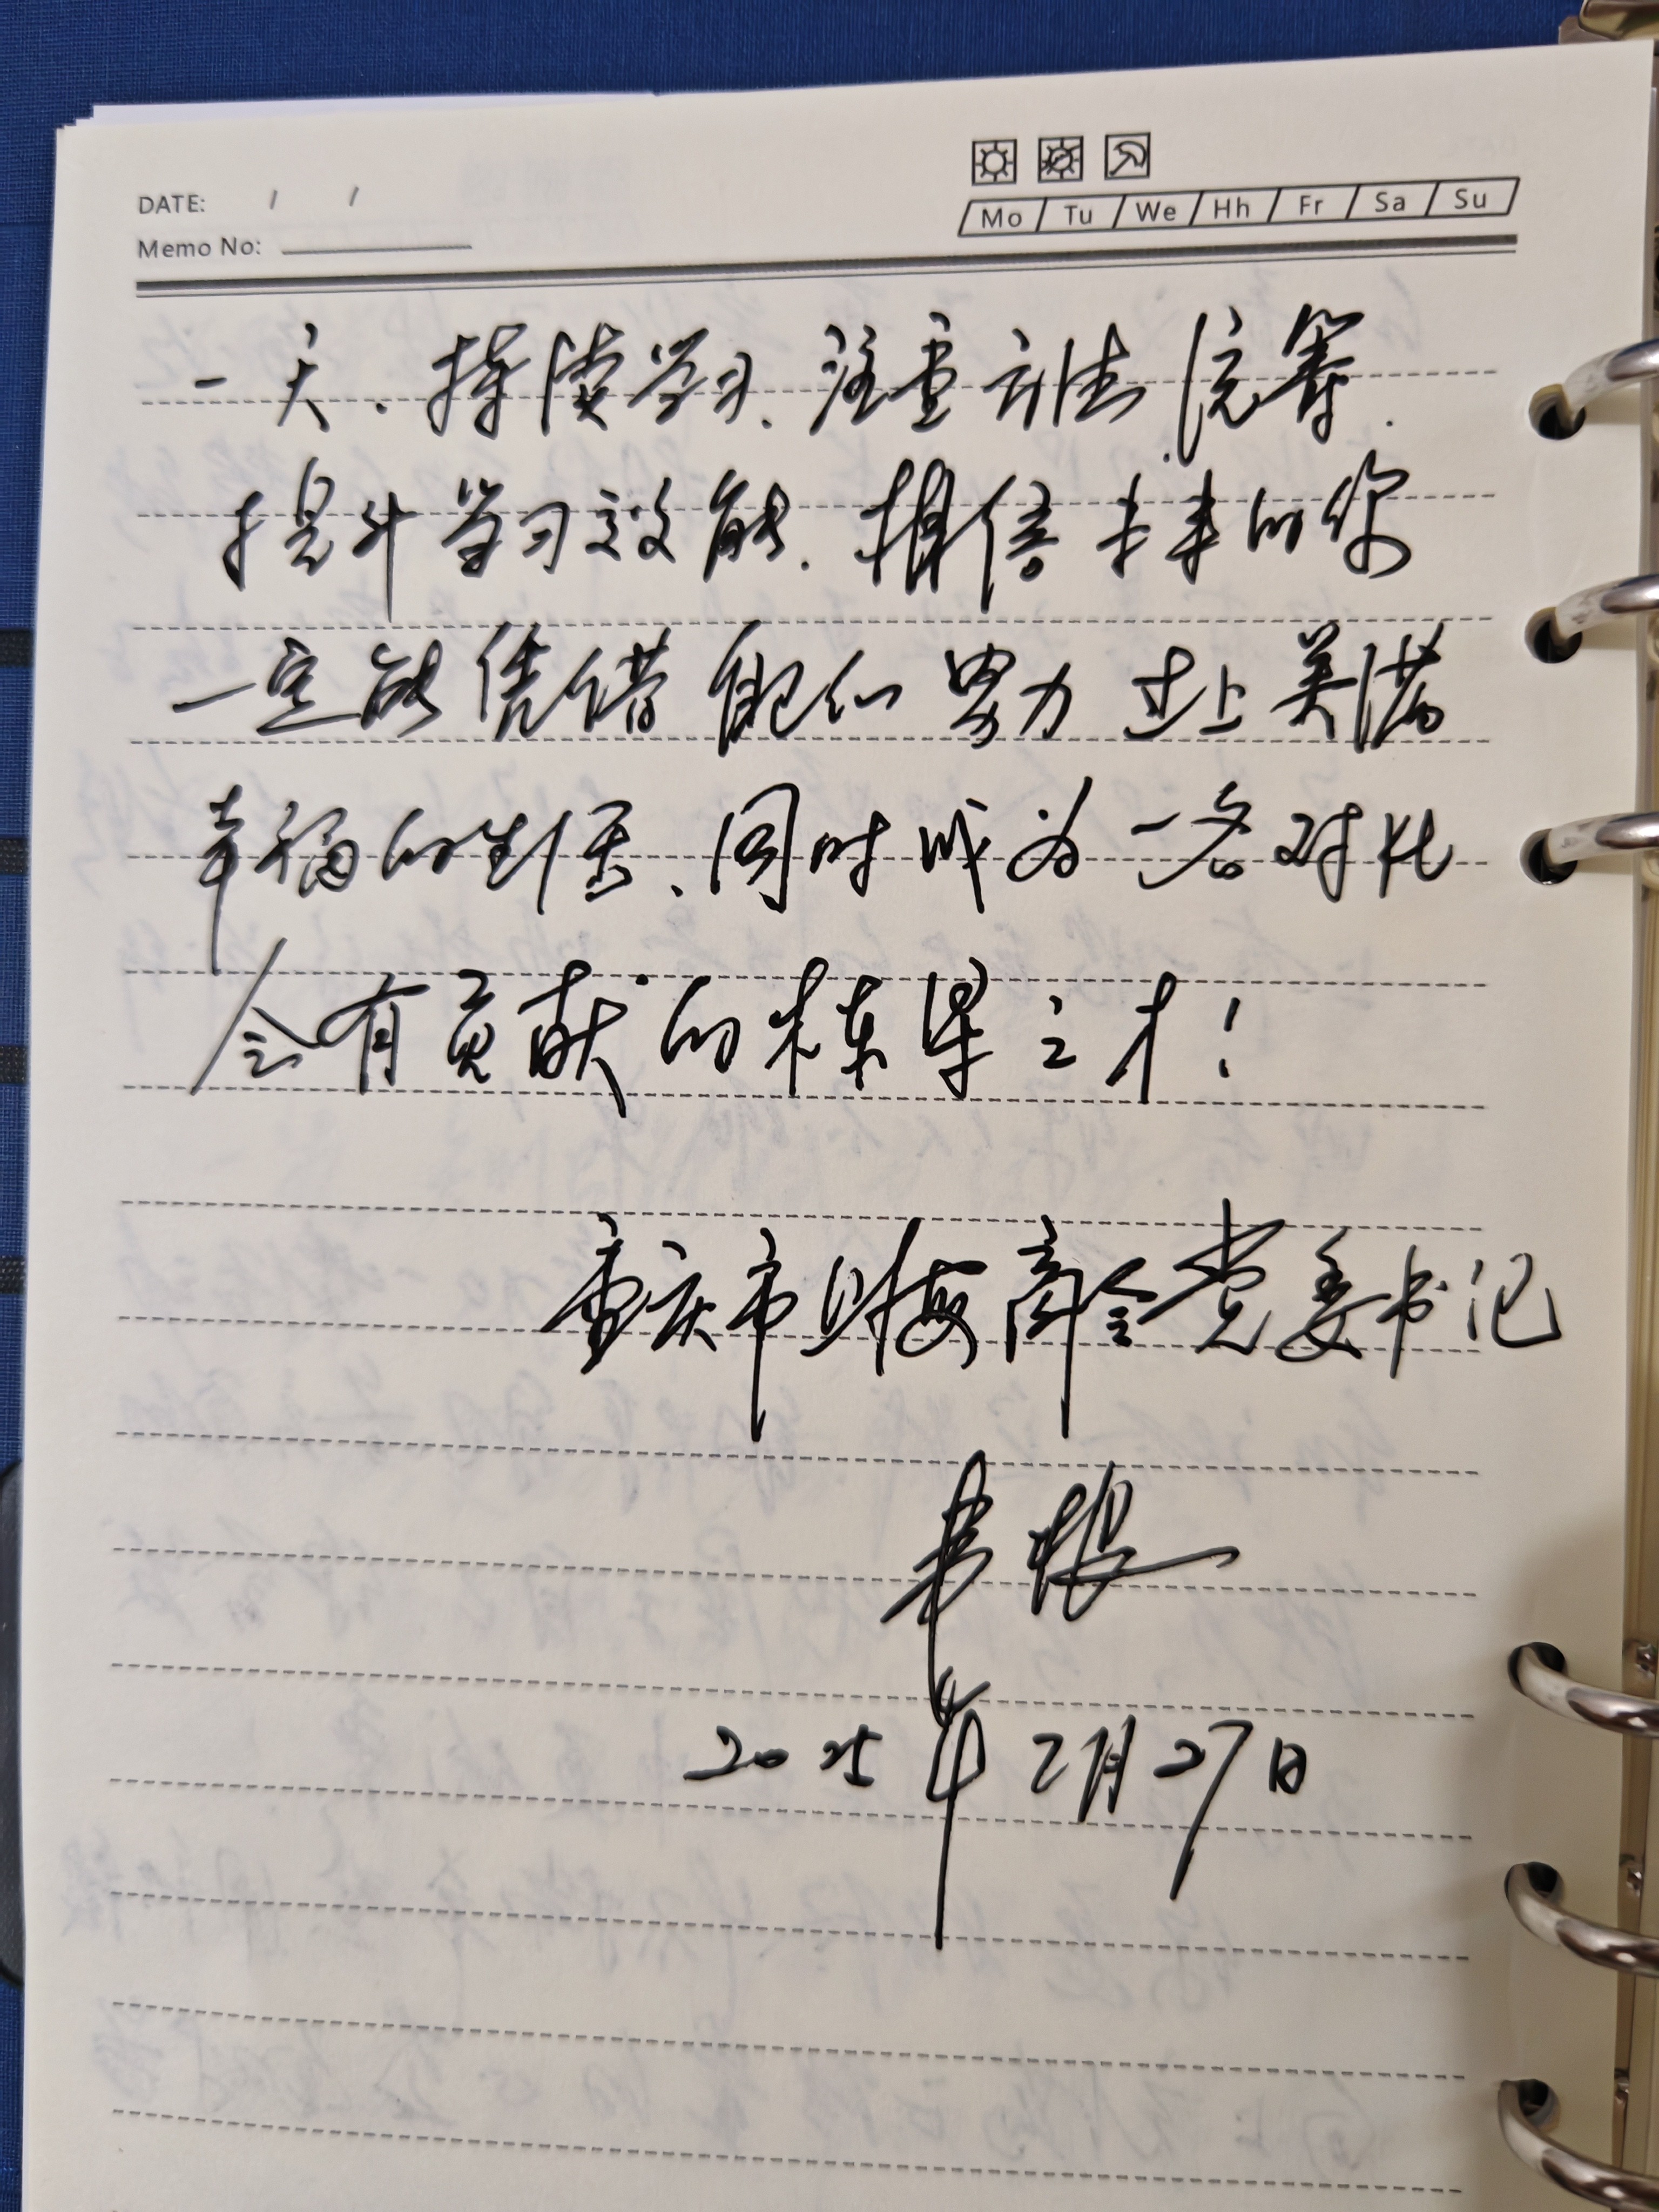 DATE: / /
Memo No:
Mo / Tu / We / Hh / Fr / Sa / Su
一天、持续学习、注重方法、统筹.
提升学习效能. 相信未来的你
一定能凭借自己的努力过上美满
幸福的生活、同时成为一名对社
会有贡献的栋梁之才!
重庆市财商会党委书记
2025年2月27日